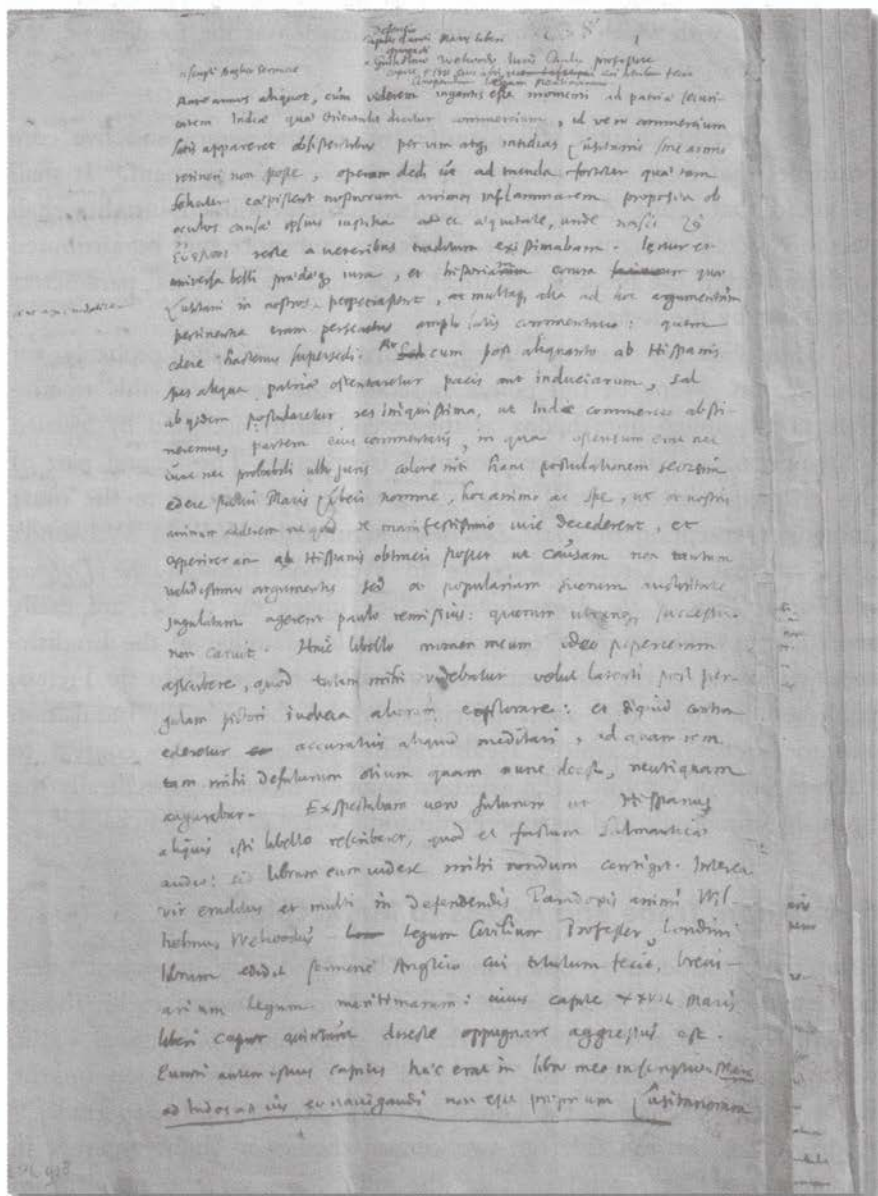 Defensio
capitis quinti Maris Liberi
oppugnati
a Guilielmo Welwodo Juris Civilis professore
capite XXVII eius libri cui titulum fecit
Compendium Legum Maritimarum
scripti Anglico sermone
Ante annos aliquot, cum viderem ingentis esse momenti ad patriae securi-
tatem Indiae quae Orientalis dicitur commercium, id vero commercium
satis appareret obsistentibus per vim atq. insidias Lusitanis sine armis
retineri non posse, operam dedi ut ad tuenda fortiter quae tam
feliciter coepissent nostrorum animos inflammarem proposita ob
oculos causae ipsius iustitia ac aequitate, unde nasci τὸ
εὔελπι recte a veteribus traditum existimabam. Igitur et
universa belli praedaeq. iura, et historiam eorum quae
Lusitani in nostros perpetrassent, ac multaq. alia ad hoc argumentum
pertinentia eram persecutus amplo satis commentario: quem
edere hactenus supersedi. At cum post aliquanto ab Hispanis
spes aliqua patriae ostentaretur pacis aut induciarum, sed
ab ijsdem postularetur res iniquissima, ut Indiae commercio absti-
neremus, partem eius commentarij, in qua ostensum erat nec
iure nec probabili ullo juris colore niti hanc postulationem seorsim
edere statui Maris Liberi nomine, hoc animo ac spe, ut et nostris
animum adderem ne quid de manifestissimo iure decederent, et
experirer an ab Hispanis obtineri posset ut causam non tantum
validissimis argumentis sed et popularium suorum auctoritate
jugulatam agerent paulo remissius: quorum utrumq. successu
non caruit. Huic libello nomen meum ideo peperceram
ascribere, quod tutum mihi videbatur velut latenti post per-
gulam pictori iudicia aliorum explorare: et si quid contra
ederetur accuratius aliquid meditari, ad quam rem
tam mihi defuturum otium quam nunc deest, neutiquam
augurabar. Exspectabam vero futurum ut Hispanus
aliquis isti libello rescriberet, quod et factum Salmanticae
audio: sed librum eum videre mihi nondum contigit. Interea
vir eruditus et multi in defendendis Paradoxis animi Wil-
helmus Welwodus Legum Civilium Professor, Londini
librum edidit sermone Anglico cui titulum fecit, brevi-
arium legum maritimarum: cuius capite XXVII Maris
liberi caput quintum diserte oppugnare aggressus est.
Quinti autem istius capitis haec erat in libro meo inscriptio: Mare
ad Indos aut ius eo navigandi non esse proprium Lusitanorum